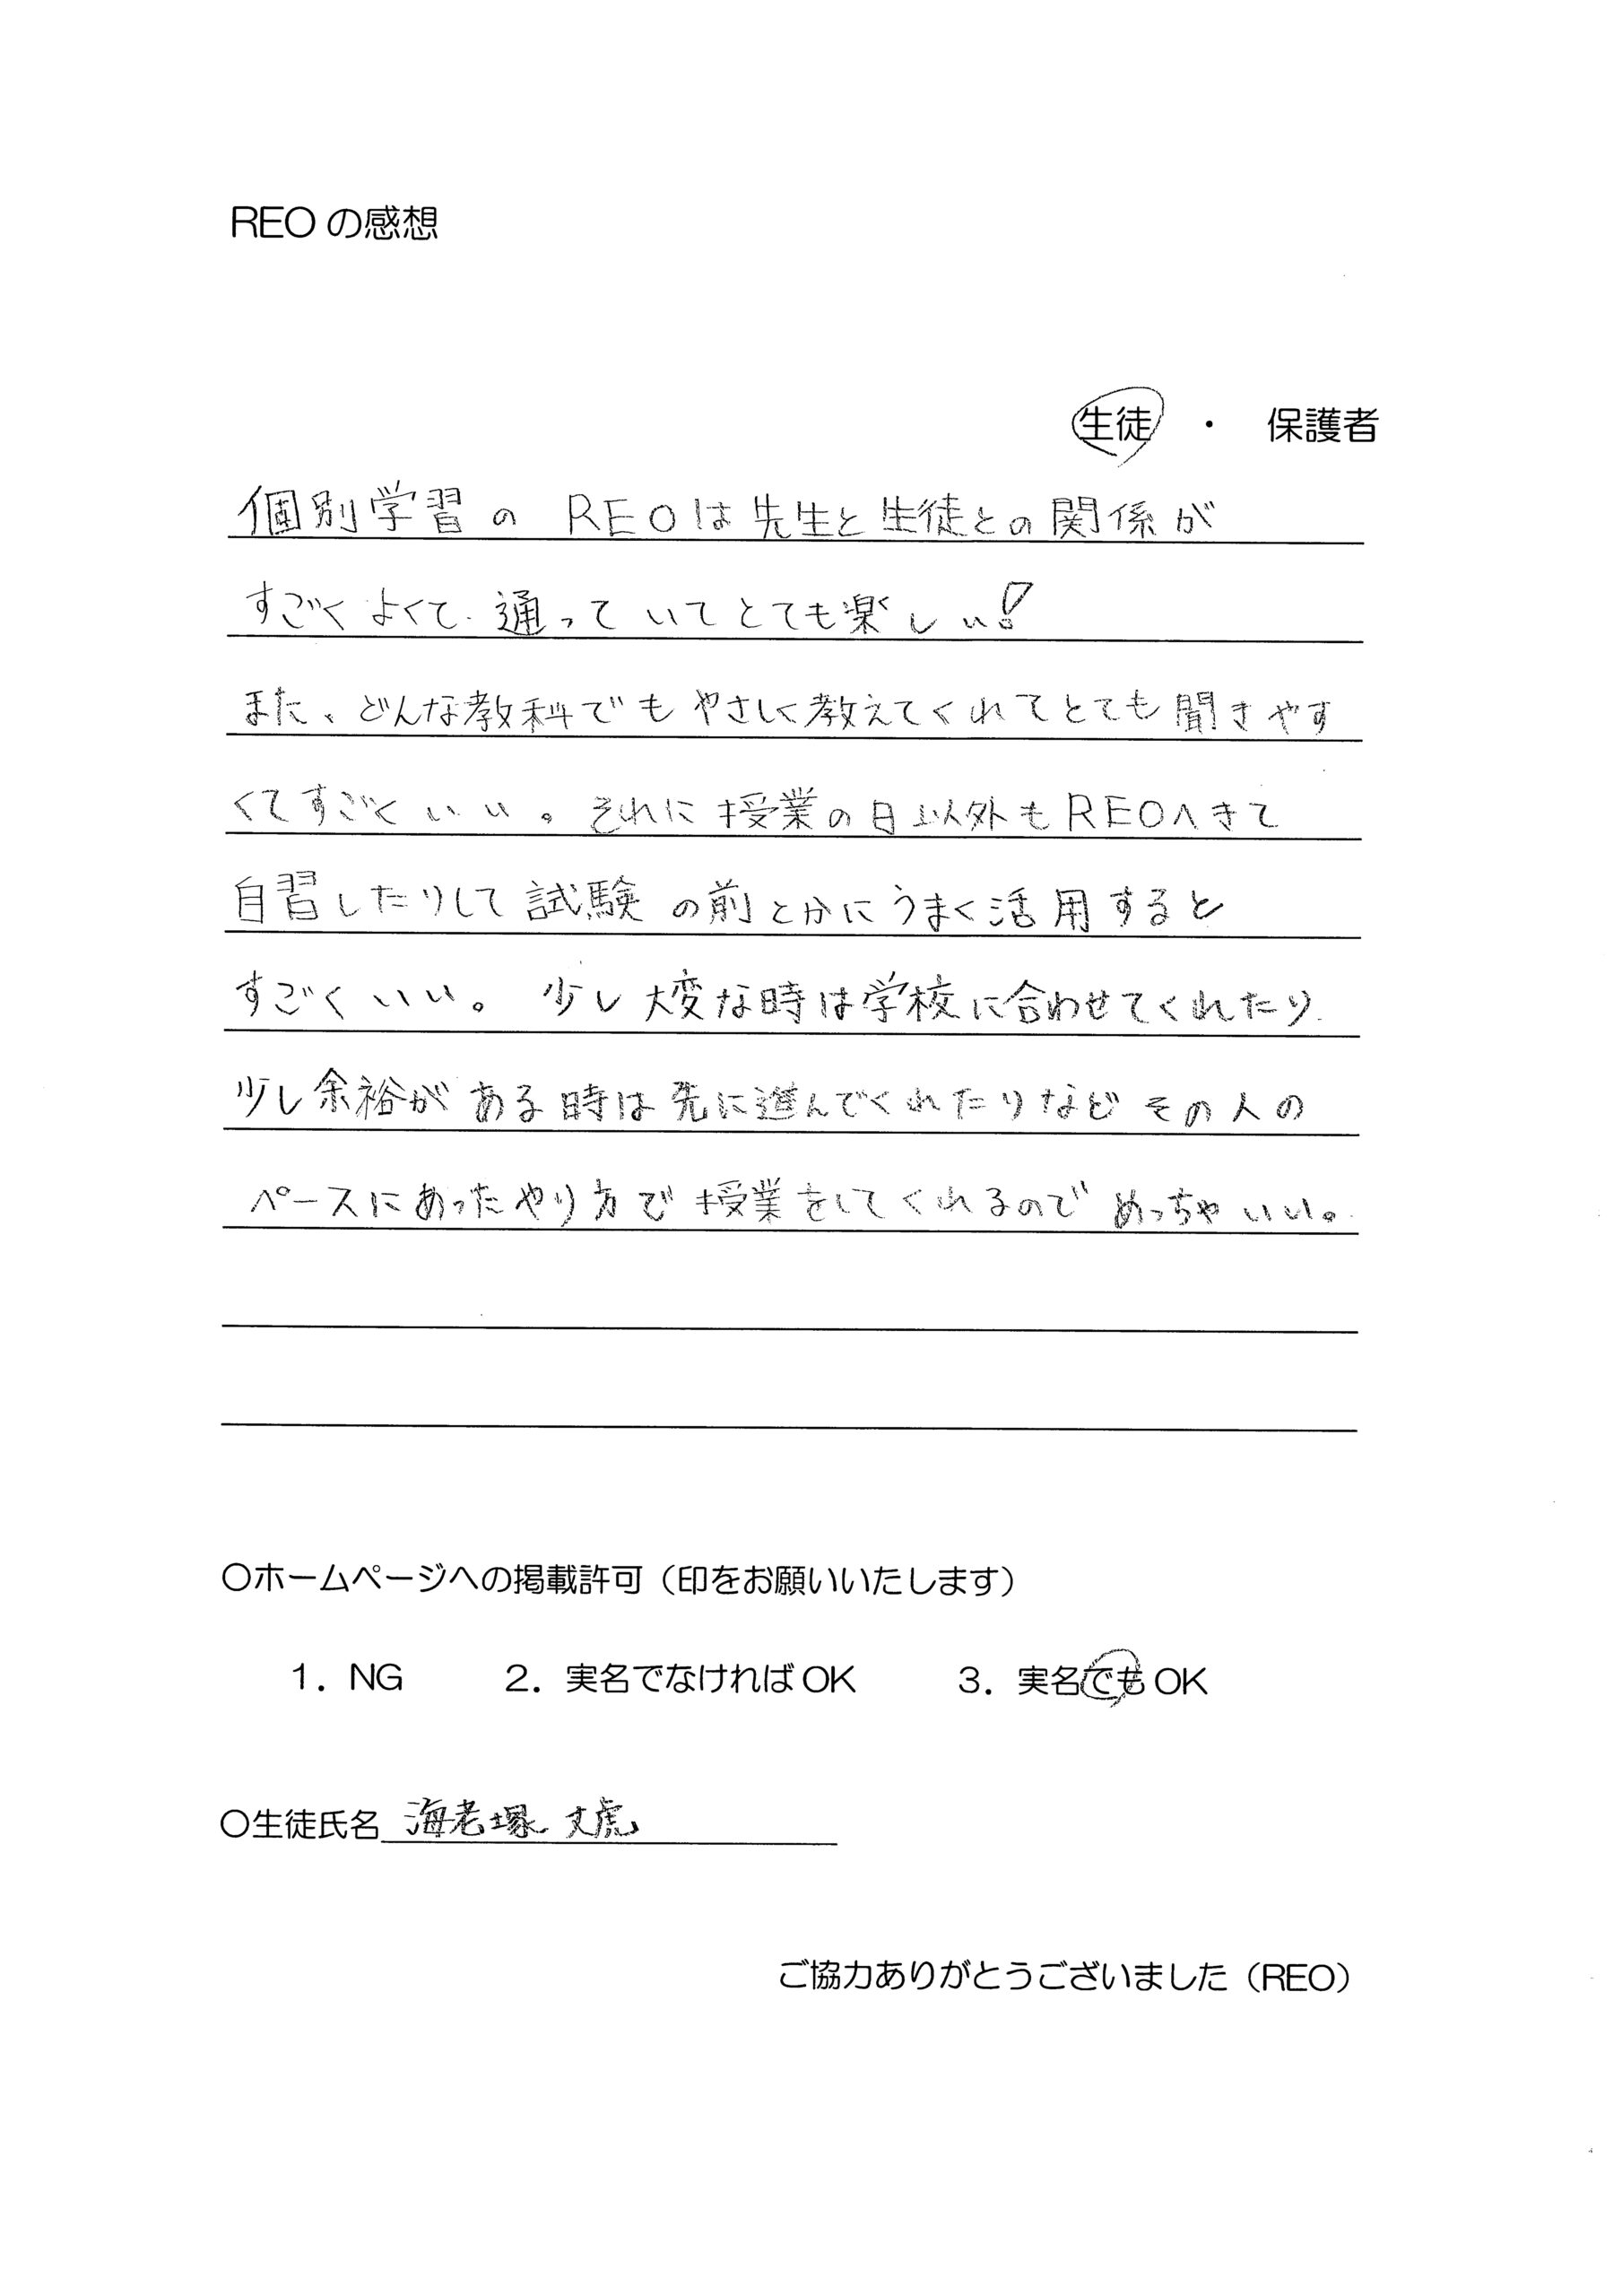 REO の感想
生徒 ・ 保護者
個別学習の REOは先生と生徒との関係が
すごくよくて、通っていてとても楽しい!
また、どんな教科でもやさしく教えてくれてとても聞きやす
くてすごくいい。それに授業の日以外もREOへきて
自習したりして試験の前とかにうまく活用すると
すごくいい。少し大変な時は学校に合わせてくれたり
少し余裕がある時は先に進んでくれたりなどその人の
ペースにあったやり方で授業をしてくれるのでめっちゃいい。
○ホームページへの掲載許可(印をお願いいたします)
1. NG 2. 実名でなければOK 3. 実名でもOK
○生徒氏名 海老塚 丈虎
ご協力ありがとうございました(REO)